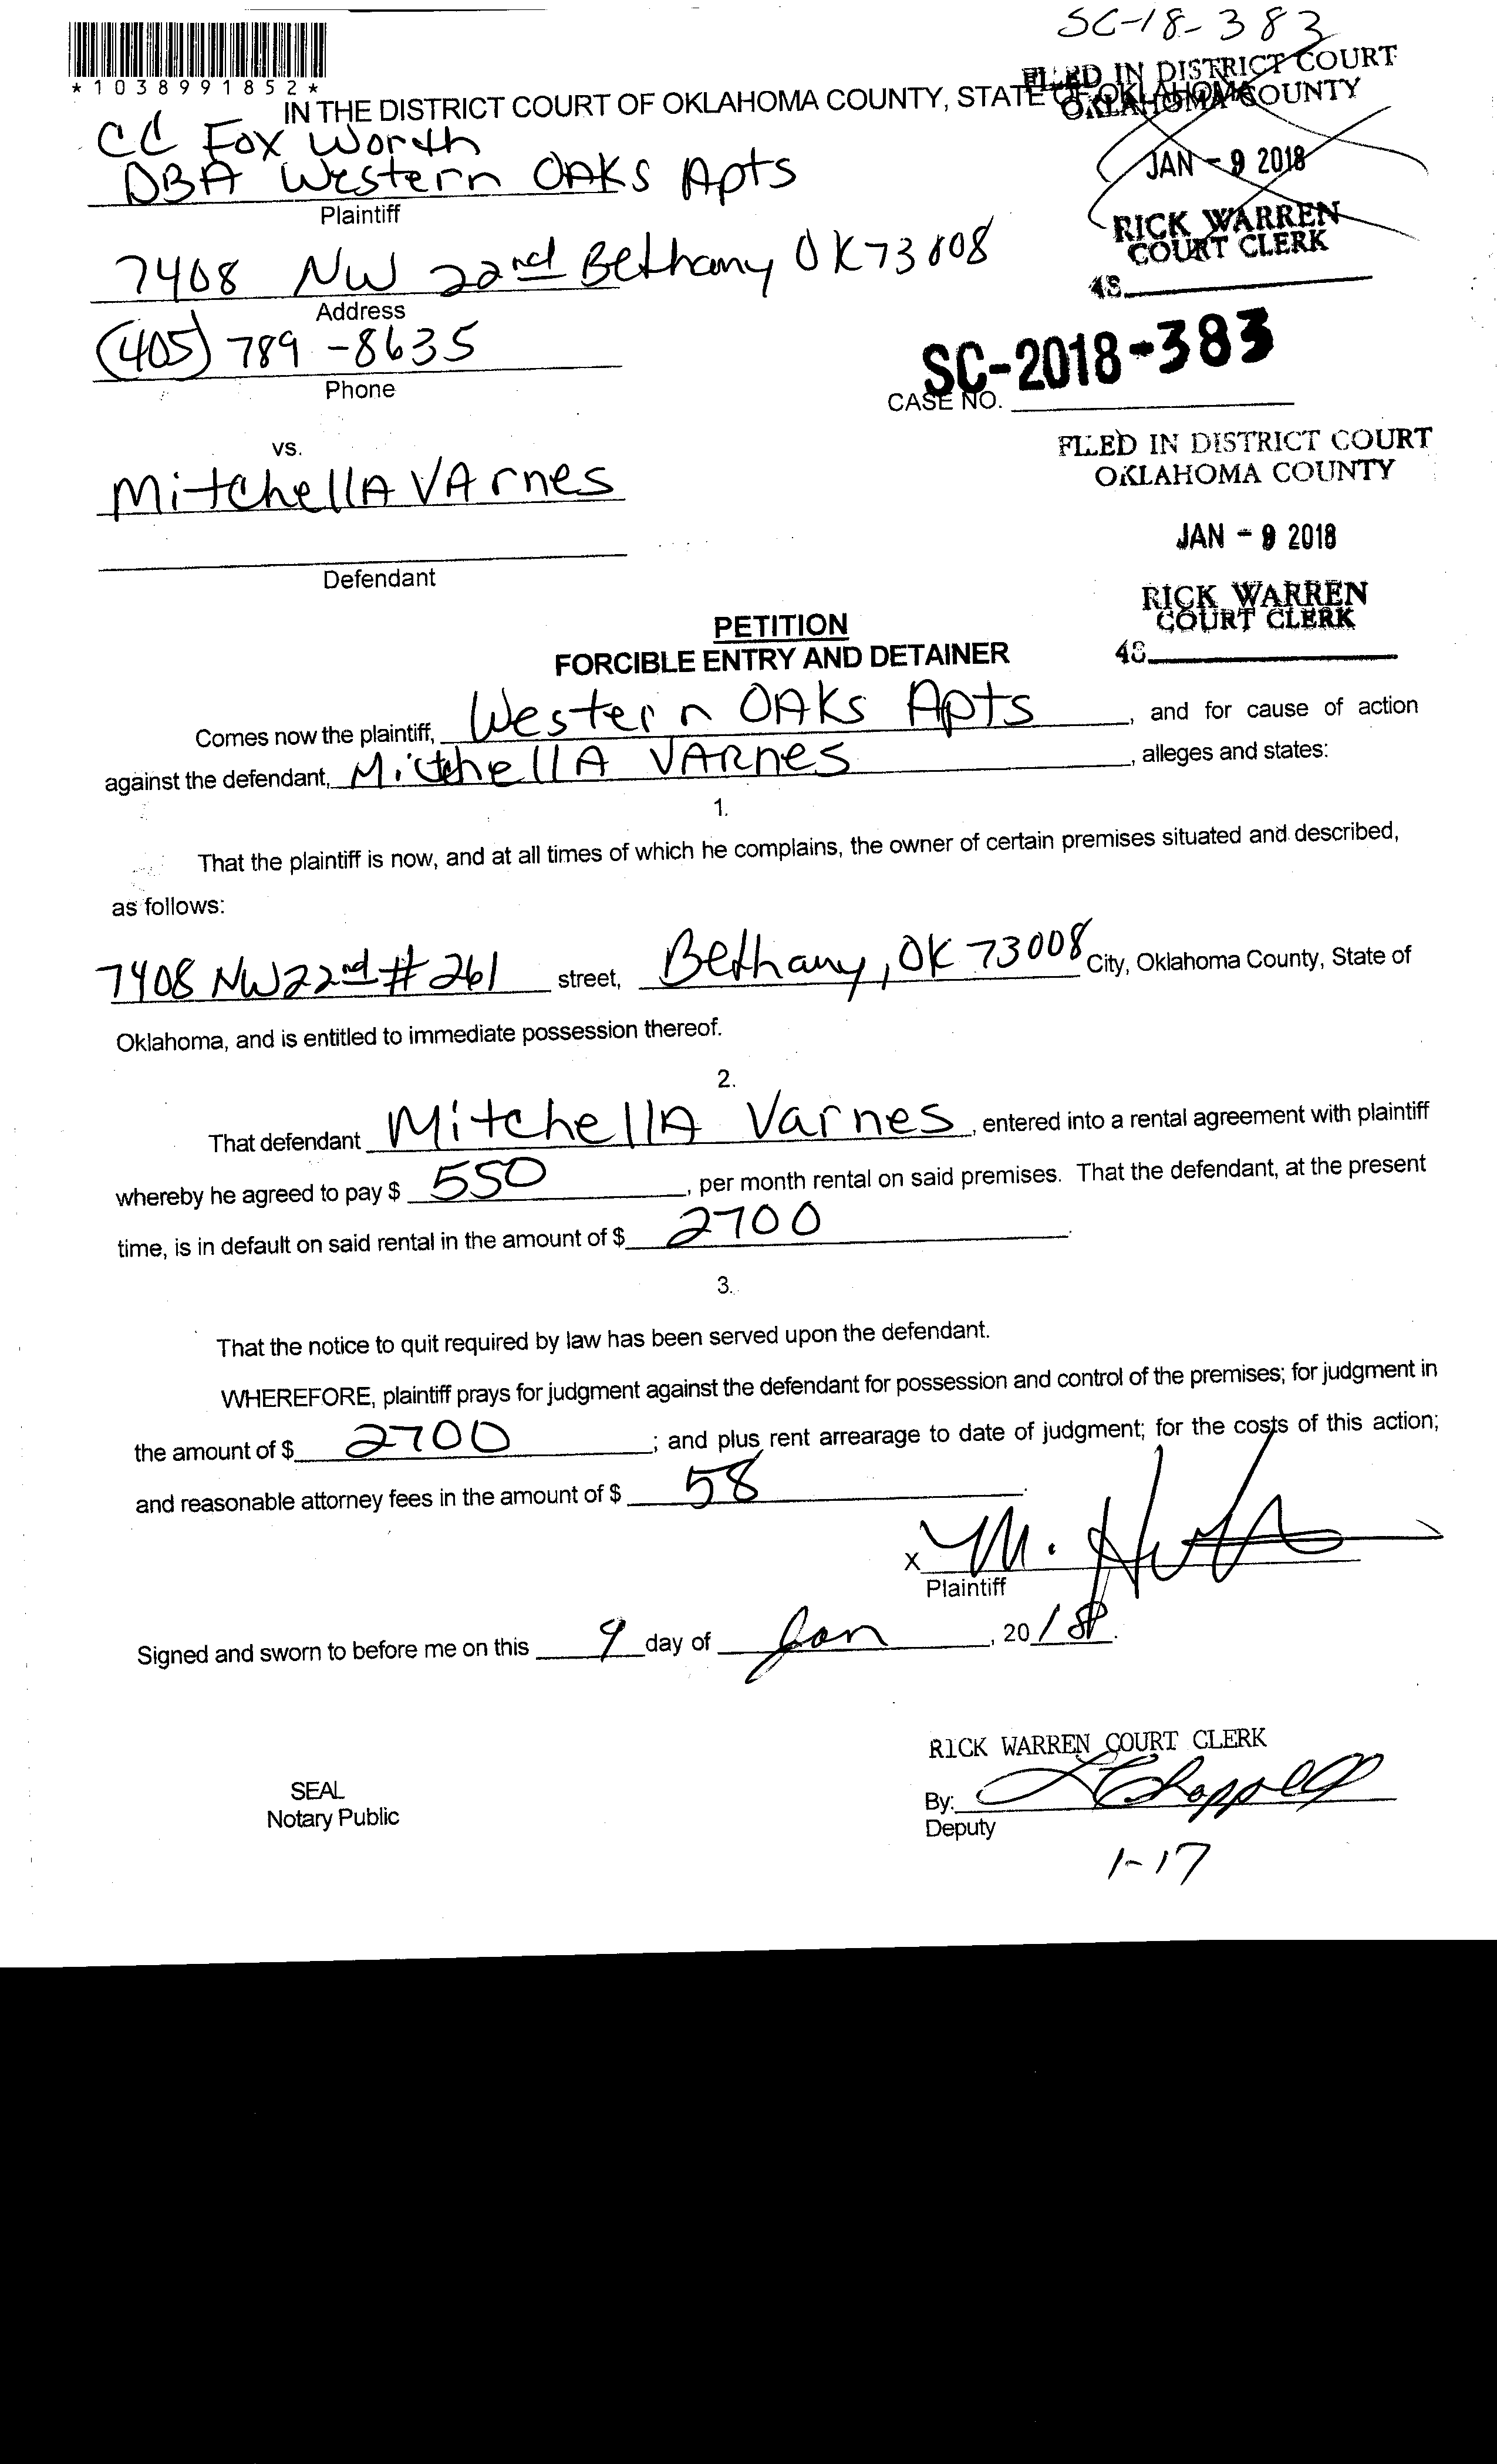 SC-18-383
*1038991852*
FILED IN DISTRICT COURT
OKLAHOMA COUNTY
IN THE DISTRICT COURT OF OKLAHOMA COUNTY, STATE OF OKLAHOMA
CC Fox Worth
DBA Western OAKs Apts
Plaintiff
JAN - 9 2018
RICK WARREN
COURT CLERK
48
7408 NW 22nd Bethany OK 73008
Address
(405) 789-8635
Phone
SC-2018-383
CASE NO.
vs.
MitchellA VArnes
Defendant
FILED IN DISTRICT COURT
OKLAHOMA COUNTY
JAN - 9 2018
RICK WARREN
COURT CLERK
48
PETITION
FORCIBLE ENTRY AND DETAINER
Comes now the plaintiff, Western OAKs Apts, and for cause of action
against the defendant, MitchellA VARnes, alleges and states:
1.
That the plaintiff is now, and at all times of which he complains, the owner of certain premises situated and described,
as follows:
7408 NW 22nd # 261 street, Bethany, OK 73008 City, Oklahoma County, State of
Oklahoma, and is entitled to immediate possession thereof.
2.
That defendant MitchellA Varnes, entered into a rental agreement with plaintiff
whereby he agreed to pay $ 550, per month rental on said premises. That the defendant, at the present
time, is in default on said rental in the amount of $ 2700.
3.
That the notice to quit required by law has been served upon the defendant.
WHEREFORE, plaintiff prays for judgment against the defendant for possession and control of the premises; for judgment in
the amount of $ 2700; and plus rent arrearage to date of judgment; for the costs of this action;
and reasonable attorney fees in the amount of $ 58.
X
Plaintiff
Signed and sworn to before me on this 9 day of Jan, 2018.
RICK WARREN COURT CLERK
SEAL
Notary Public
By:
Deputy
1-17